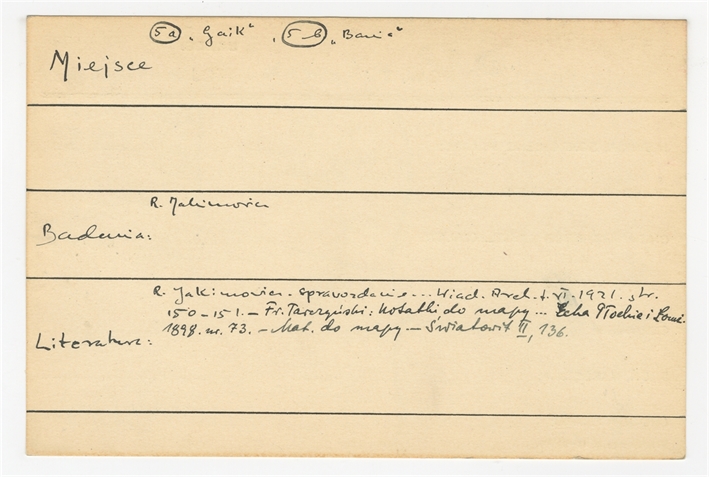 5a „Gaik“, 5b „Bania“
Miejsce
R. Jakimowicz
Badania:
R. Jakimowicz. Sprawozdanie... Wiad. Arch. t. VI. 1921. str.
150-151. – Fr. Tarczyński: Notatki do mapy... Echa Płockie i Łomż.
1898. nr. 73. – Mat. do mapy – Światowit II, 136.
Literatura: